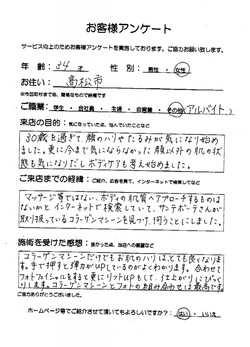 お客様アンケート
サービス向上のためお客様アンケートを実施しております。ご協力お願い致します。
年 齢： 34 才 性 別： 男性 ・ 女性
お住い： 高松市
※市区町村まで等、簡単なもので結構です
ご職業： 学生 ・ 会社員 ・ 主婦 ・ 自営業 ・ その他（アルバイト）
来店の目的： 気になっていた点、悩んでいたことなど
30歳を過ぎて、顔のハリやたるみが気になり始め
ました。更に今まで気にならなかった顔以外の肌の状
態も気になりだしボディケアも考え始めました。
ご来店までの経緯： ご紹介、広告を見て、インターネットで検索してなど
マッサージ等ではない、ボディの肌質へアプローチするものは
ないかとインターネットで検索していて、サンテポーテさんが
取り扱っているコラーゲンマシーンを見つけ、伺うことにしました。
施術を受けた感想： 良かった点、当店への要望など
コラーゲンマシーンだけでもお肌のハリはとても良くなりま
す。手で押すと弾力がUPしているのがよくわかります。合わせて
フォトフェイシャルをすると更にリフトUPもして、仕上がりにびっく
りします。コラーゲンマシーンとフォトの組み合せは最高です
ご協力ありがとうございました。
ホームページ等でご紹介させて頂いてもよろしいですか？： はい ・ いいえ